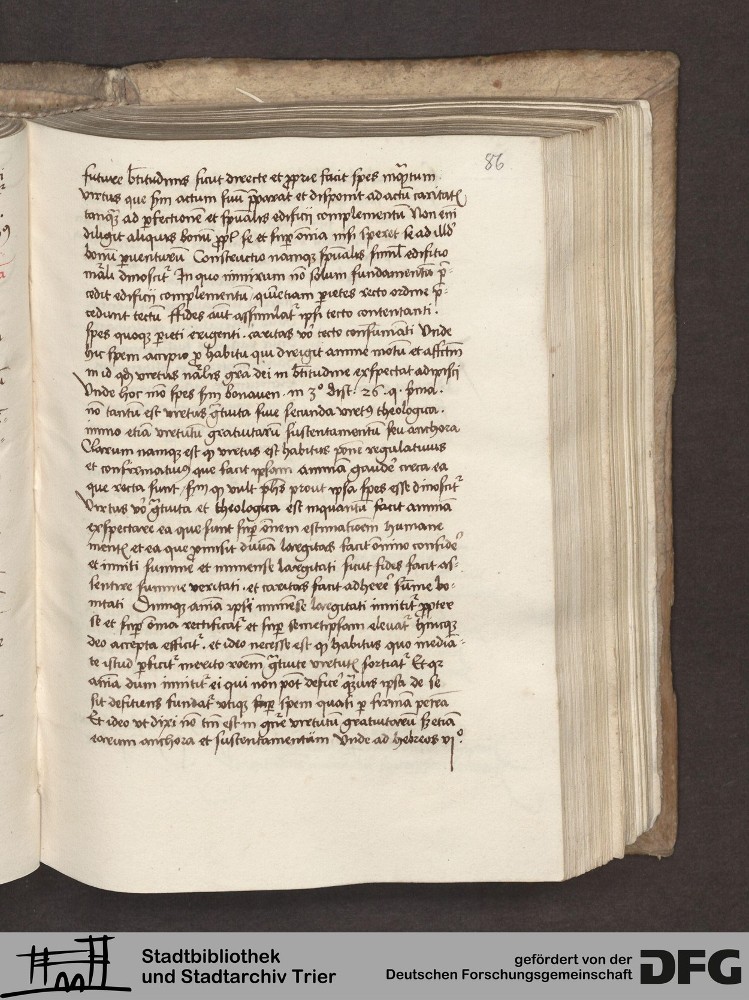 86
future b̄titudinis sicut directe et ꝓprie facit spes inq̄ntum
virtus que scdm actum suū p̄parat et disponit ad actū caritatꝭ
tanq̄ ad ꝑfectionē et spūalis edificij complementū Non eni
diligit aliquis bonū ꝓpt̉ se et sup̄ om̄ia nisi speret se ad illd̓
bonū ꝑventurū Constructio namqꝫ spūalis simil̉ edificio
mālī dinoscit̉ In quo nimirum nō solum fundamentū p̄⸗
cedit edificij complementū, quinetiam parietes recto ordine p̄⸗
cedunt tectum ffides aut̄ assimilat̉ ipsi tecto contentanti.
Spes quoqꝫ pieti erigenti. caritas vō tecto consumati Unde
hic spem accipio ꝓ habitu qui dirigit anime motū et affectū
in id qd̓ virtus nālis grā dei in b̄titudine exspectat adipisci
Unde hoc mō spes scdm bonauen. in 3º dist. 26. q. p̄ma.
nō tantū est virtus gtuita siue secunda virtꝰ theologica.
immo etiā virtutū gratuitarū sustentamentū seu anchora
Clarum namqꝫ est ꝙ virtus est habitus pone regulatiuus
et confirmatiuꝰ que facit ipsam animā gaudē circa ea
que recta sunt / scdm ꝙ vult ph̄s prout ipsa spes esse dinoscit̉
Virtus vō gtuita et theologica est inquantū facit animā
exspectare ea que sunt sup̄ om̄em estimationem humane
mentꝭ et ea que ꝓmisit diuina largitas facit om̄ino confidē
et inniti summe et immense largitati sicut fides facit as⸗
sentire summe veritati. et caritas facit adherē sūme bo⸗
nitati Cumqꝫ aīa ipsi immēse largitati innitit̉ ꝓpter
se et sup̄ om̄ia rectificat̉ et sup̄ semetipsam eleuat̉ hincqꝫ
deo accepta efficit̉. et ideo necesse est ꝙ habitus quo mediā⸗
te istud ꝑficit̉ merito rōem gtuite virtutꝭ sortiat̉ Et qꝛ
aīa dum innitit̉ ei qui non pōt deficē q̄uis ipsa de se
sit deficiens fundat̉ vtiqꝫ sup̄ spem quasi ꝑ firmā petrā
Et ideo vt dixi nō tm̄ est in gn̄e virtutū gratuitarū sꝫ etiā
earum anchora et sustentamentum Unde ad hebreos vjº
Stadtbibliothek
und Stadtarchiv Trier
gefördert von der
Deutschen Forschungsgemeinschaft
DFG